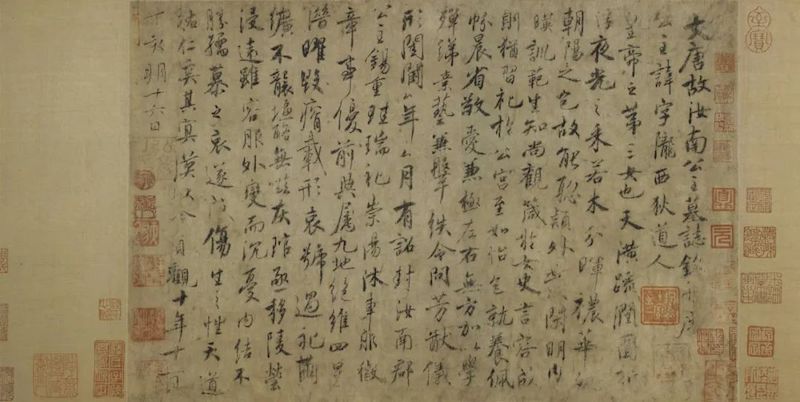 大唐故汝南公主墓誌銘并序
公主諱字隴西狄道人
皇帝之第三女也天潢疏潤圓折
浮夜光之采若木分暉穠華
朝陽之色故能聡穎外發閑明内
暎訓範生知尚觀箴於女史言容成
則猶習礼於公宮至如怡色就養佩
帉晨省敬愛兼極左右無方加以學
殫綈素藝兼鞶紩令問芳猷儀
形閨閫厶年厶月有詔封汝南郡
公主錫重珪瑞礼崇湯沐車服徽
章事優前典屬九地絶維四星
潛曜毀瘠載形哀號過礼繭
纊不襲塩酪無嗞灰琯亟移陵塋
浸遠雖容服外變而沉憂内結不
勝孺慕之哀遂成傷生之性天道
祐仁奚其冥漠以今貞觀十年十一月
丁亥朔十六日